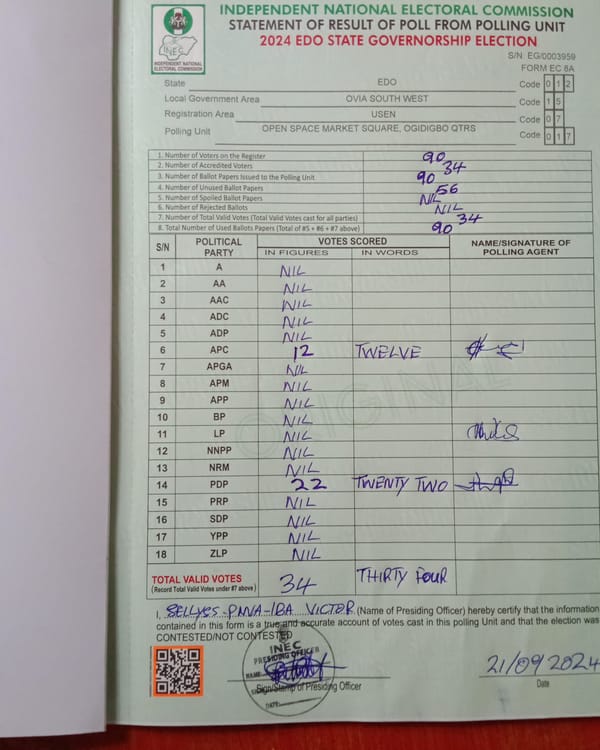 INDEPENDENT NATIONAL ELECTORAL COMMISSION
STATEMENT OF RESULT OF POLL FROM POLLING UNIT
2024 EDO STATE GOVERNORSHIP ELECTION
INEC
INDEPENDENT NATIONAL
ELECTORAL COMMISSION
S/N: EG/0003959
FORM EC 8A
State EDO Code 0 1 2
Local Government Area OVIA SOUTH WEST Code 1 5
Registration Area USEN Code 0 7
Polling Unit OPEN SPACE MARKET SQUARE, OGIDIGBO QTRS Code 0 1 7
1. Number of Voters on the Register 90
2. Number of Accredited Voters 34
3. Number of Ballot Papers Issued to the Polling Unit 90
4. Number of Unused Ballot Papers 56
5. Number of Spoiled Ballot Papers NIL
6. Number of Rejected Ballots NIL
7. Number of Total Valid Votes (Total Valid Votes cast for all parties) 34
8. Total Number of Used Ballots Papers (Total of #5 + #6 + #7 above) 90
S/N POLITICAL PARTY VOTES SCORED NAME/SIGNATURE OF POLLING AGENT
IN FIGURES IN WORDS
1 A NIL
2 AA NIL
3 AAC NIL
4 ADC NIL
5 ADP NIL
6 APC 12 TWELVE
7 APGA NIL
8 APM NIL
9 APP NIL
10 BP NIL
11 LP NIL
12 NNPP NIL
13 NRM NIL
14 PDP 22 TWENTY TWO
15 PRP NIL
16 SDP NIL
17 YPP NIL
18 ZLP NIL
ORIGINAL
TOTAL VALID VOTES 34 THIRTY FOUR
(Record Total Valid Votes under #7 above)
I, VICTOR (Name of Presiding Officer) hereby certify that the information
contained in this form is a true and accurate account of votes cast in this polling Unit and that the election was
CONTESTED/NOT CONTESTED
INEC
PRESIDING OFFICER
NAME:
DATE:
Sign/Stamp of Presiding Officer
21/09/2024
Date